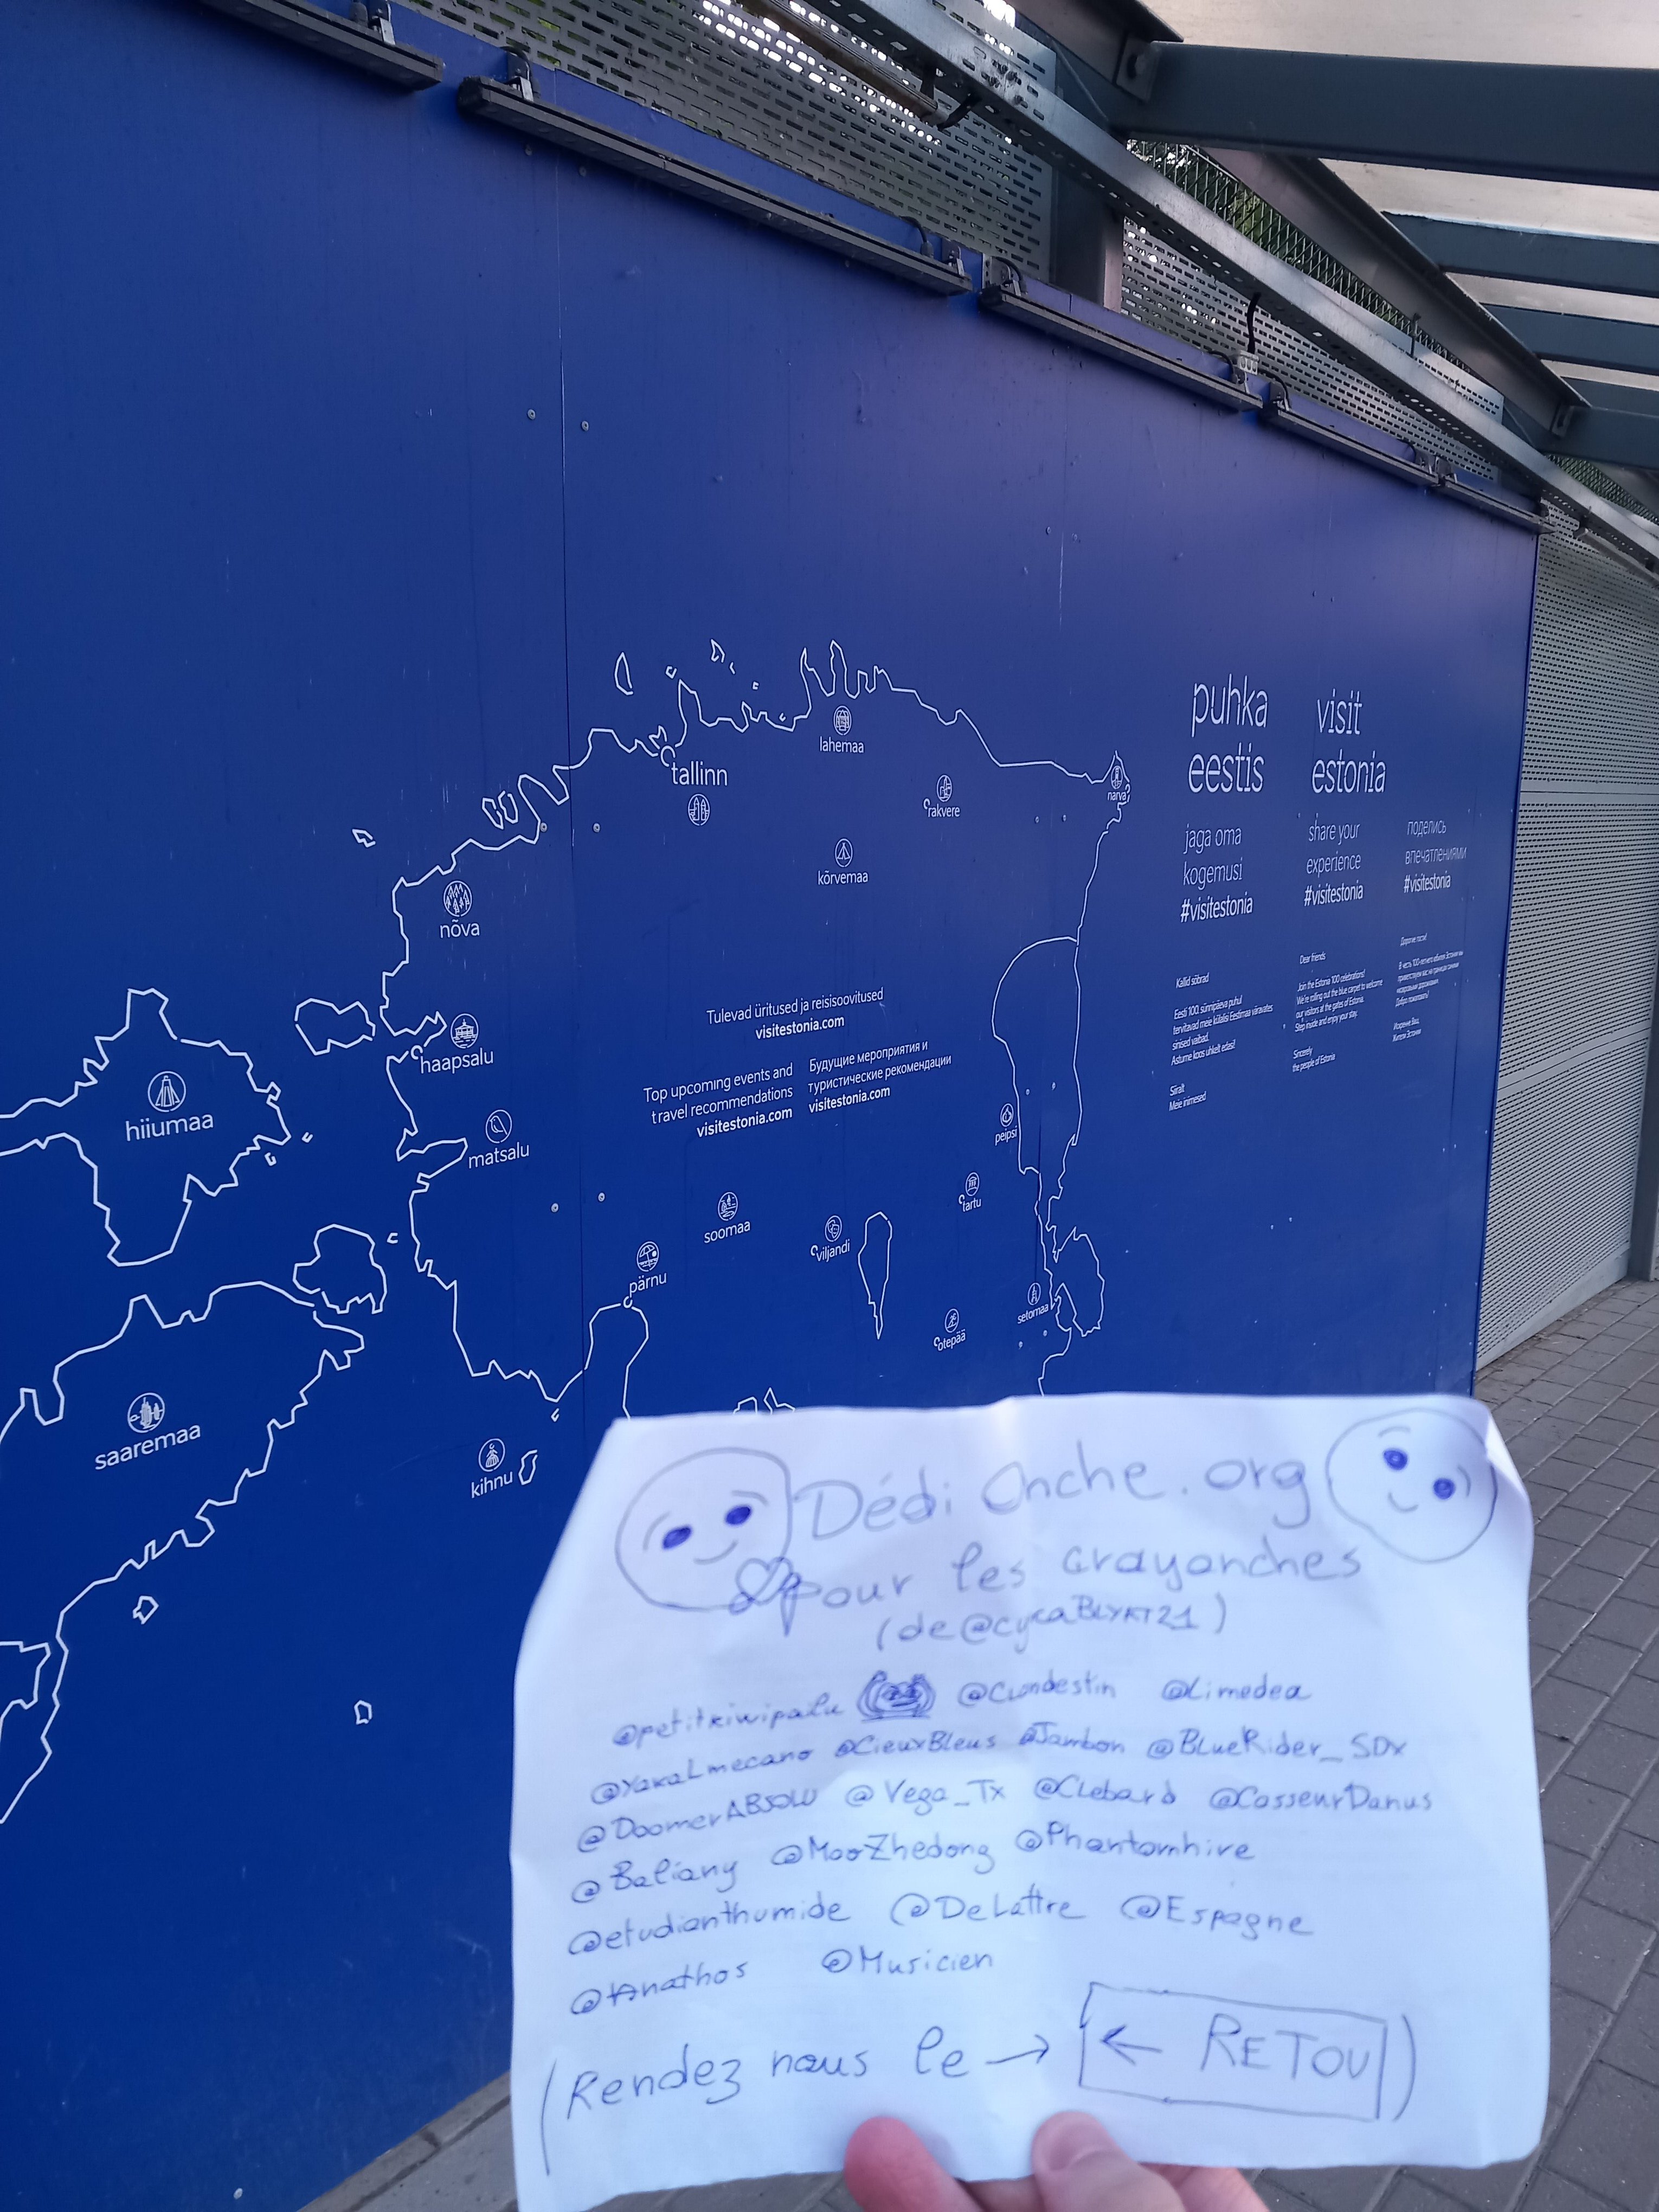 lahemaa
tallinn
rakvere
narva
kõrvemaa
nõva
haapsalu
hiiumaa
matsalu
peipsi
tartu
soomaa
viljandi
pärnu
setomaa
otepää
saaremaa
kihnu
Tulevad üritused ja reisisoovitused
visitestonia.com
Top upcoming events and
travel recommendations
visitestonia.com
Будущие мероприятия и
туристические рекомендации
visitestonia.com
puhka
eestis
jaga oma
kogemusi
#visitestonia
Kallid sõbrad
Eesti 100. sünnipäeva puhul
tervitavad meie külalisi Eestimaa väravates
sinised vaibad.
Astume koos uhkelt edasi!
Siiralt
Meie inimesed
visit
estonia
share your
experience
#visitestonia
Dear friends
Join the Estonia 100 celebrations!
We're rolling out the blue carpet to welcome
our visitors at the gates of Estonia.
Step inside and enjoy your stay.
Sincerely
the people of Estonia
поделись
впечатлениями
#visitestonia
Дорогие гости!
В честь 100-летнего юбилея Эстонии мы
приветствуем вас на границах синими
ковровыми дорожками.
Добро пожаловать!
Искренне Ваш,
Жители Эстонии
Dédi Onche.org
pour les crayonches
(de @cycaBLYAT21)
@petitkiwipalu @Clandestin @Limedea
@YakaLmecano @CieuxBleus @Jambon @BlueRider_SDX
@DoomerABSOLU @Vega_Tx @Clebard @CasseurDanus
@Baliany @MaoZhedong @Phantomhive
@etudianthumide @DeLattre @Espagne
@tAnathos @Musicien
(Rendez nous le → ← RETOU)